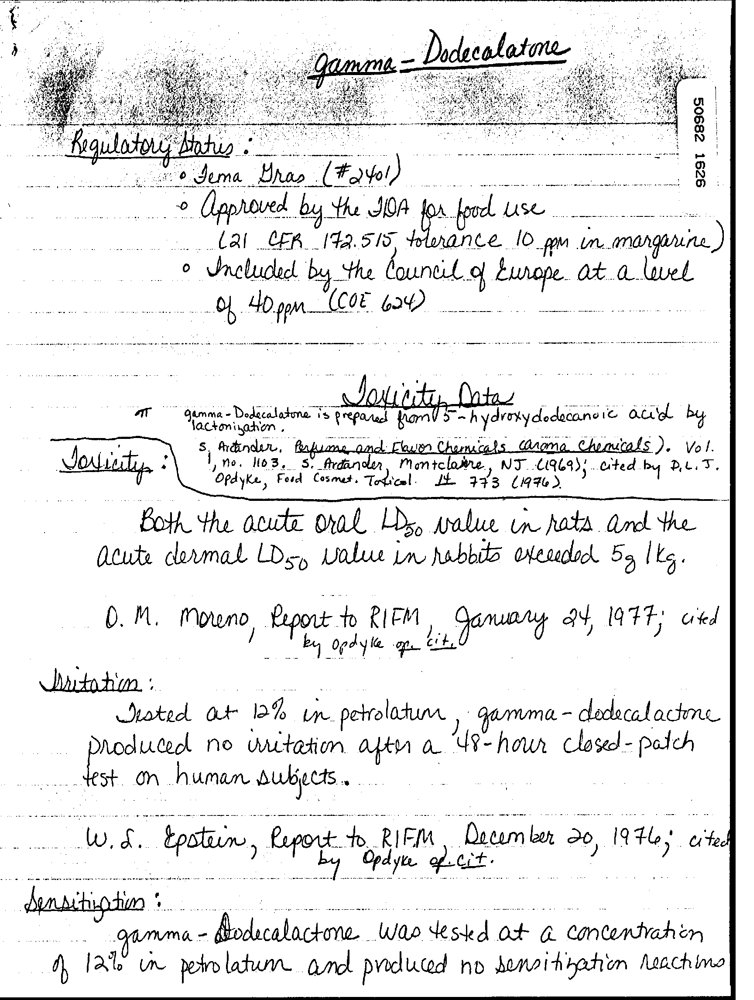 gamma-Dodecalatone
50682 1626
Regulatory Status:
• Fema Gras (#2401)
• Approved by the FDA for food use
(21 CFR 172.515, tolerance 10 ppm in margarine)
• Included by the Council of Europe at a level
of 40 ppm (COE 624)
Toxicity Data
gamma-Dodecalatone is prepared from 5-hydroxydodecanoic acid by
lactonization.
Toxicity:
S. Arctander. Perfume and Flavor Chemicals (aroma chemicals). Vol.
1, no. 1103. S. Arctander, Montclaire, NJ (1969); cited by D.L.J.
Opdyke, Food Cosmet. Toxicol. 14 773 (1976).
Both the acute oral LD50 value in rats and the
acute dermal LD50 value in rabbits exceeded 5g/kg.
O. M. Moreno, Report to RIFM, January 24, 1977; cited
by Opdyke op. cit.
Irritation:
Tested at 12% in petrolatum, gamma-dodecalactone
produced no irritation after a 48-hour closed-patch
test on human subjects.
W. L. Epstein, Report to RIFM, December 20, 1976; cited
by Opdyke op. cit.
Sensitization:
gamma-Dodecalactone was tested at a concentration
of 12% in petrolatum and produced no sensitization reactions